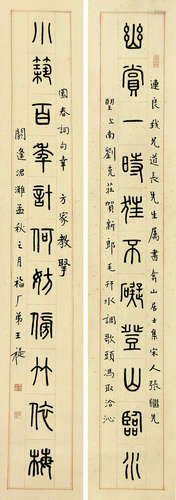 幽賞一時狂不礙登山臨水
連良我兄道長先生屬書 山居士集宋人張繼先
望江南劉克莊賀新郎毛幵水調歌頭馮取洽沁
園春詞句奉 方家教
小築百年計何妨傍竹依梅
閼逢涒灘孟秋之月福厂弟王禔